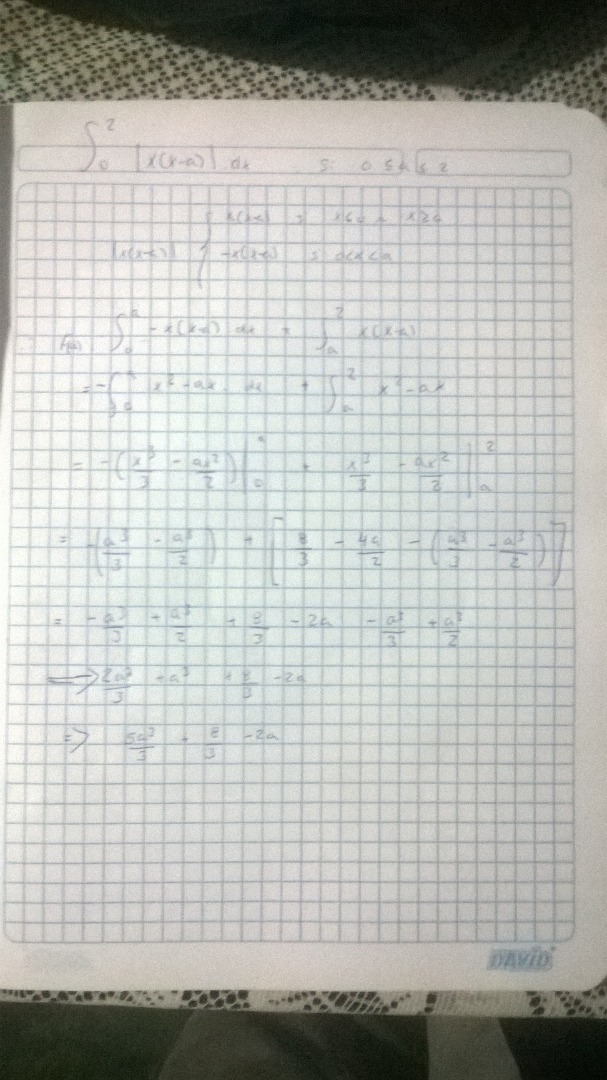 ∫₀² |x(x-a)| dx si 0 ≤ a ≤ 2
|x(x-a)| { x(x-a) si x≤0 ∧ x≥a
-x(x-a) si 0<x<a
∫₀ᵃ -x(x-a) dx + ∫ₐ² x(x-a)
= -∫₀ᵃ x² - ax dx + ∫ₐ² x² - ax
= -(x³/3 - ax²/2)|₀ᵃ + x³/3 - ax²/2 |ₐ²
= -(a³/3 - a³/2) + [8/3 - 4a/2 - (a³/3 - a³/2)]
= -a³/3 + a³/2 + 8/3 - 2a - a³/3 + a³/2
=> 2a³/3 + a³ + 8/3 - 2a
=> 5a³/3 + 8/3 - 2a
DAVID